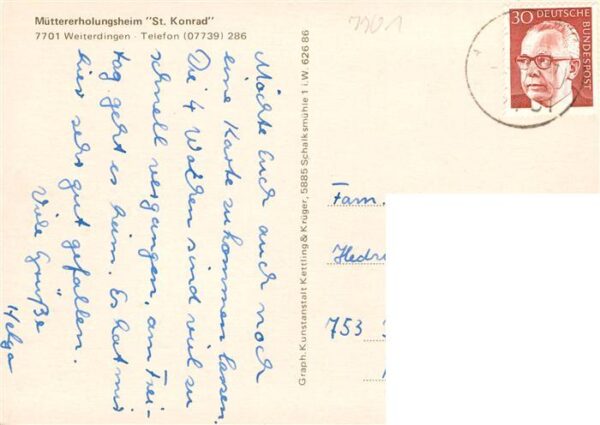 Müttererholungsheim "St. Konrad"
7701 Weiterdingen · Telefon (07739) 286
Möchte Euch auch noch
eine Karte zukommen lassen.
Die 4 Wochen sind viel zu
schnell vergangen, am Frei-
tag geht es heim. Es hat mir
hier sehr gut gefallen.
Viele Grüße
Helga
Graph. Kunstanstalt Kettling & Krüger, 5885 Schalksmühle 1 i.W. 626 86
7701
30 DEUTSCHE
BUNDESPOST
Fam.
753